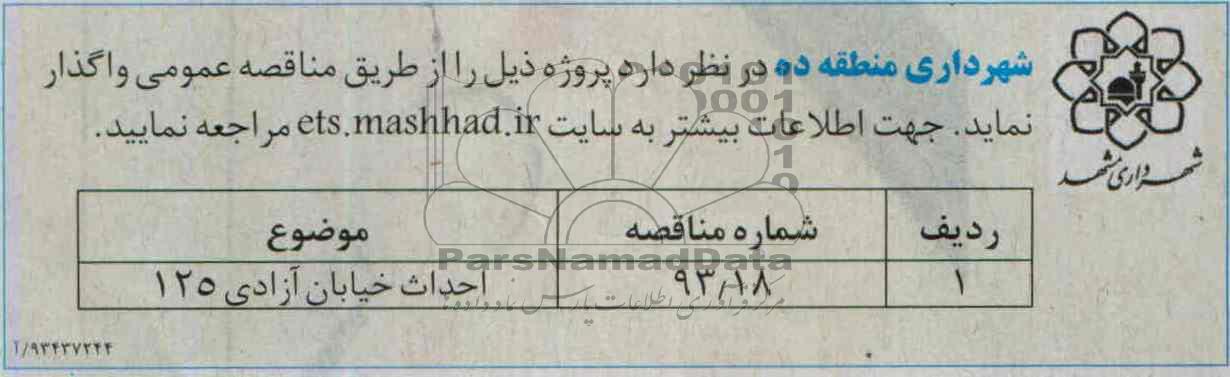 شهرداری مشهد
شهرداری منطقه ده در نظر دارد پروژه ذیل را از طریق مناقصه عمومی واگذار
نماید. جهت اطلاعات بیشتر به سایت ets.mashhad.ir مراجعه نمایید.
ردیف شماره مناقصه موضوع
۱ ۹۳/۱۸ احداث خیابان آزادی ۱۲۵
ParsNamadData
مرکز فرآوری اطلاعات پارس نماد داده ها
۹۳۴۳۷۲۴۴/آ